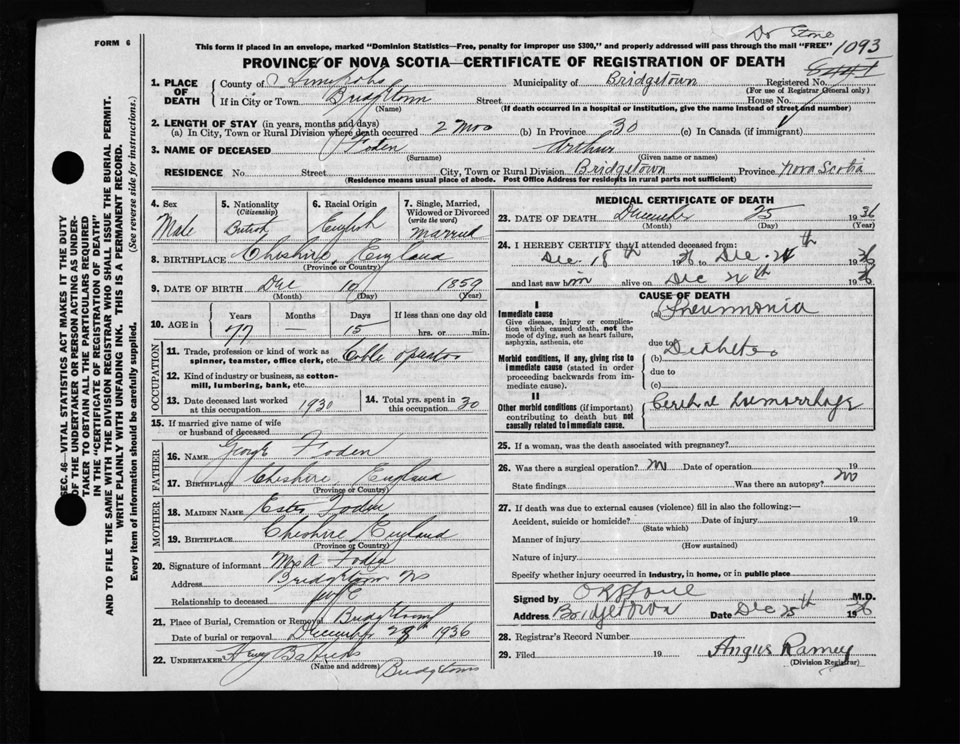 Dr Stone
FORM 6
This form if placed in an envelope, marked "Dominion Statistics—Free, penalty for improper use $300," and properly addressed will pass through the mail "FREE"
1093
PROVINCE OF NOVA SCOTIA—CERTIFICATE OF REGISTRATION OF DEATH
1. PLACE OF DEATH
County of Annapolis Municipality of Bridgetown Registered No.
(For use of Registrar General only)
If in City or Town Bridgetown Street House No.
(Name) (If death occurred in a hospital or institution, give the name instead of street and number)
2. LENGTH OF STAY (in years, months and days)
(a) In City, Town or Rural Division where death occurred 2 Mos (b) In Province 30 (c) In Canada (if immigrant)
3. NAME OF DECEASED Foden Arthur
(Surname) (Given name or names)
RESIDENCE No. Street City, Town or Rural Division Bridgetown Province Nova Scotia
(Residence means usual place of abode. Post Office Address for residents in rural parts not sufficient)
4. Sex Male
5. Nationality (Citizenship) British
6. Racial Origin English
7. Single, Married, Widowed or Divorced (write the word) Married
8. BIRTHPLACE Cheshire, England
(Province or Country)
9. DATE OF BIRTH Dec 10 1859
(Month) (Day) (Year)
10. AGE in Years Months Days If less than one day old
77 — 15 hrs. or min.
OCCUPATION
11. Trade, profession or kind of work as spinner, teamster, office clerk, etc. Cable operator
12. Kind of industry or business, as cotton-mill, lumbering, bank, etc.
13. Date deceased last worked at this occupation 1930
14. Total yrs. spent in this occupation 30
15. If married give name of wife or husband of deceased
FATHER
16. NAME George Foden
17. BIRTHPLACE Cheshire, England
(Province or Country)
MOTHER
18. MAIDEN NAME Foden
19. BIRTHPLACE Cheshire, England
(Province or Country)
20. Signature of informant Mrs A Foden
Address Bridgetown NS
Relationship to deceased wife
21. Place of Burial, Cremation or Removal Bridgetown
Date of burial or removal December 28 1936
22. UNDERTAKER
(Name and address) Bridgetown
MEDICAL CERTIFICATE OF DEATH
23. DATE OF DEATH December 25 1936
(Month) (Day) (Year)
24. I HEREBY CERTIFY that I attended deceased from:
Dec. 18th 36 to Dec. 24th 1936
and last saw him alive on Dec 24th 1936
CAUSE OF DEATH
I
Immediate cause
Give disease, injury or complication which caused death, not the mode of dying, such as heart failure, asphyxia, asthenia, etc
(a) Pneumonia
due to
Morbid conditions, if any, giving rise to immediate cause (stated in order proceeding backwards from immediate cause).
(b) Diabetes
due to
(c)
II
Other morbid conditions (if important) contributing to death but not causally related to immediate cause.
Cerebral Hemorrhage
25. If a woman, was the death associated with pregnancy?
26. Was there a surgical operation? No Date of operation 19
State findings Was there an autopsy? No
27. If death was due to external causes (violence) fill in also the following:—
Accident, suicide or homicide? Date of injury 19
(State which)
Manner of injury
(How sustained)
Nature of injury
Specify whether injury occurred in industry, in home, or in public place
Signed by Stone M.D.
Address Bridgetown Date Dec 25th 1936
28. Registrar's Record Number
29. Filed 19 Angus Ramey
(Division Registrar)
SEC. 46—VITAL STATISTICS ACT MAKES IT THE DUTY
OF THE UNDERTAKER OR PERSON ACTING AS UNDER-
TAKER TO OBTAIN ALL THE PARTICULARS REQUIRED
IN THE "CERTIFICATE OF REGISTRATION OF DEATH"
AND TO FILE THE SAME WITH THE DIVISION REGISTRAR WHO SHALL ISSUE THE BURIAL PERMIT.
WRITE PLAINLY WITH UNFADING INK. THIS IS A PERMANENT RECORD.
Every item of information should be carefully supplied. (See reverse side for instructions.)